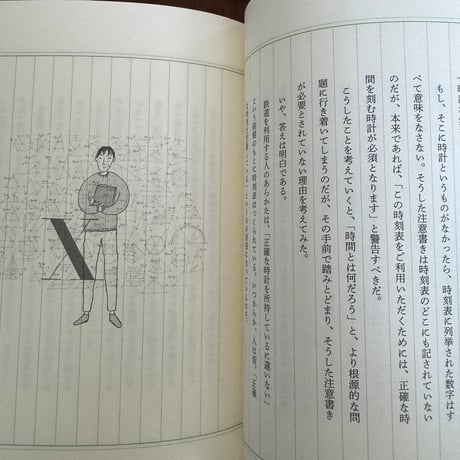 もし、そこに時計というものがなかったら、時刻表に列挙された数字はす
べて意味をなさない。そうした注意書きは時刻表のどこにも記されていない
のだが、本来であれば、「この時刻表をご利用いただくためには、正確な時
間を刻む時計が必須となります」と警告すべきだ。
こうしたことを考えていくと、「時間とは何だろう」と、より根源的な問
題に行き着いてしまうのだが、その手前で踏みとどまり、そうした注意書き
が必要とされていない理由を考えてみた。
いや、答えは明白である。
鉄道を利用する人のあらかたは、「正確な時計を所持しているに違いない」
という前提のもとに時刻表はつくられている。いつからか、人は皆、「正確
X